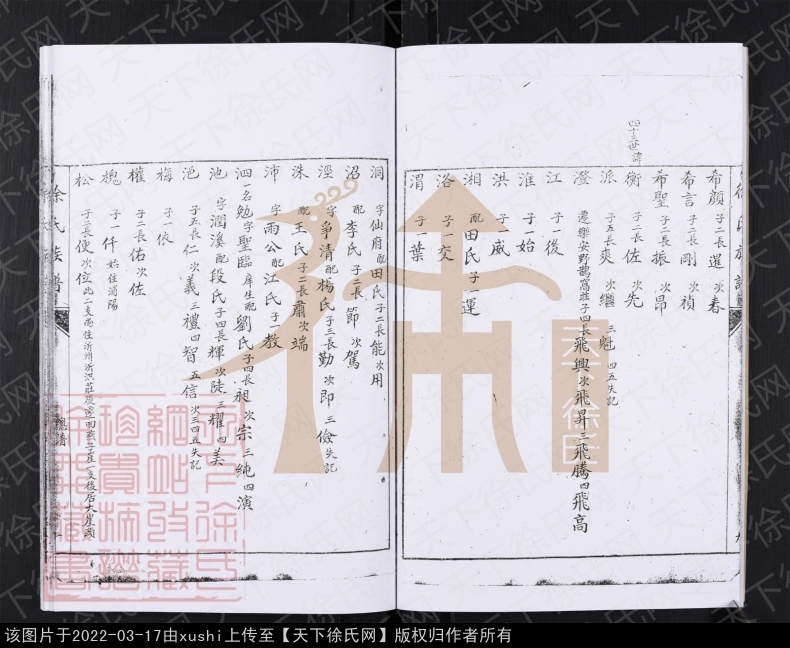 四十三世諱
希顏 子二長運 次春
希言 子二長剛 次禎
希聖 子二長振 次昂
衡 子二長佐 次先
派 子五長奭 次繼 三魁 四五失記
澄 遷樂安野鵲窩莊子四長飛興 次飛昇 三飛騰 四飛高
江 子一後
淮 子一始
洪 子一威
湘 配田氏 子一運
洛 子一交
渭 子一葉
洞 字仙府 配田氏 子二長能 次用
沼 配李氏 子二長節 次駕
涇 字爭清 配楊氏 子三長勤 次即 三儉失記
洙 配王氏 子二長肅 次端
沛 字雨公 配江氏 子一教
泗 一名勉 字聖臨 庠生 配劉氏 子四長昶 次宗 三純 四演
池 字潤溪 配段氏 子四長輝 次陡 三耀 四美
浥 子五長仁 次義 三禮 四智 五信 次三四五失記
梅 子一依
權 子二長佑 次佐
槐 子一仟 始住濱陽
松 子二長使 次位 此二支尚住沂州沂汶莊
徐氏族譜
總譜
天下徐氏网
该图片于2022-03-17由xushi上传至【天下徐氏网】版权归作者所有